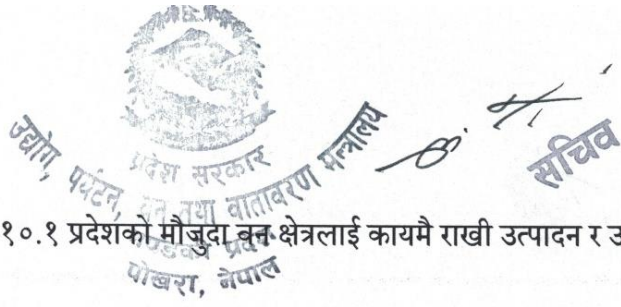 प्रदेश सरकार
उद्योग, पर्यटन, वन तथा वातावरण मन्त्रालय
गण्डकी प्रदेश
पोखरा, नेपाल
सचिव
१०.१ प्रदेशको मौजुदा वन क्षेत्रलाई कायमै राखी उत्पादन र उ